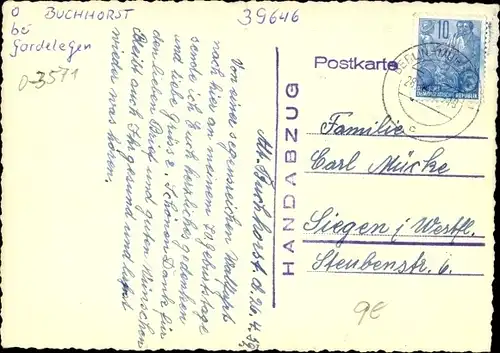 O BUCHHORST
bei
Gardelegen
O-3571
39646
10
Postkarte
BERLIN
HANDABZUG
Alt. Buchhorst. d. 26. 4. 59
Von einer segensreichen Wallfahrt
nach hier an meinem 70 Geburtstage
sende ich Euch herzliches gedenken
und liebe grüsse. Schönen Dank für
den lieben Brief und guten Wünschen
Bleibt auch Ihr gesund und lasst
wieder was hören.
Familie
Carl Mücke
Siegen i/Westfl.
Steubenstr. 6.
9€